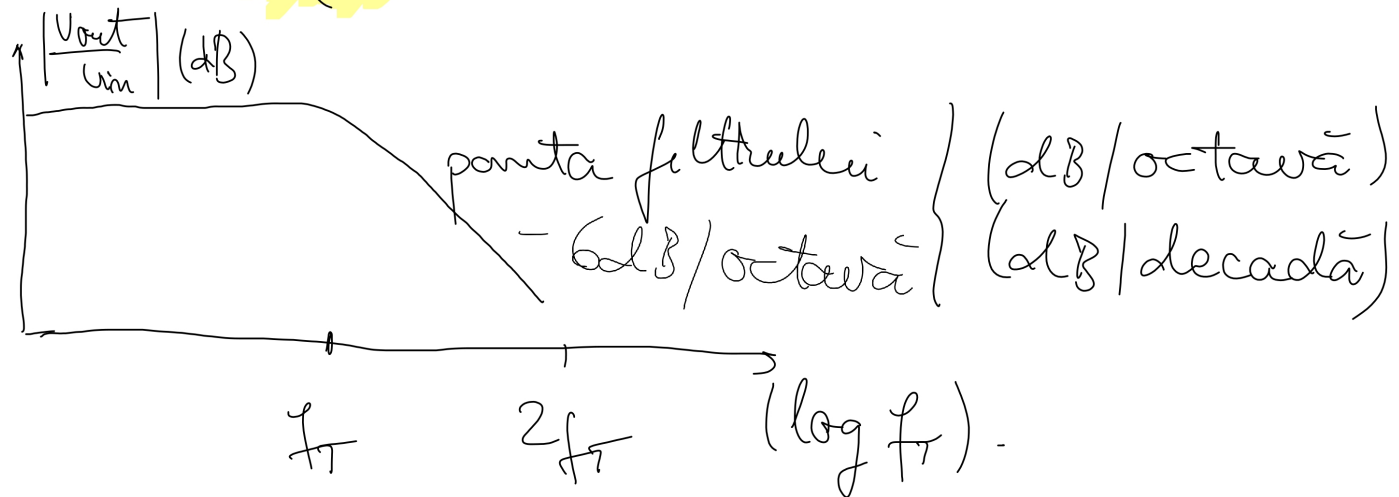 |Vout / Vin| (dB)
panta filtrului } (dB/octavă)
- 6dB/octavă } (dB/decadă)
fT 2fT (log fT).